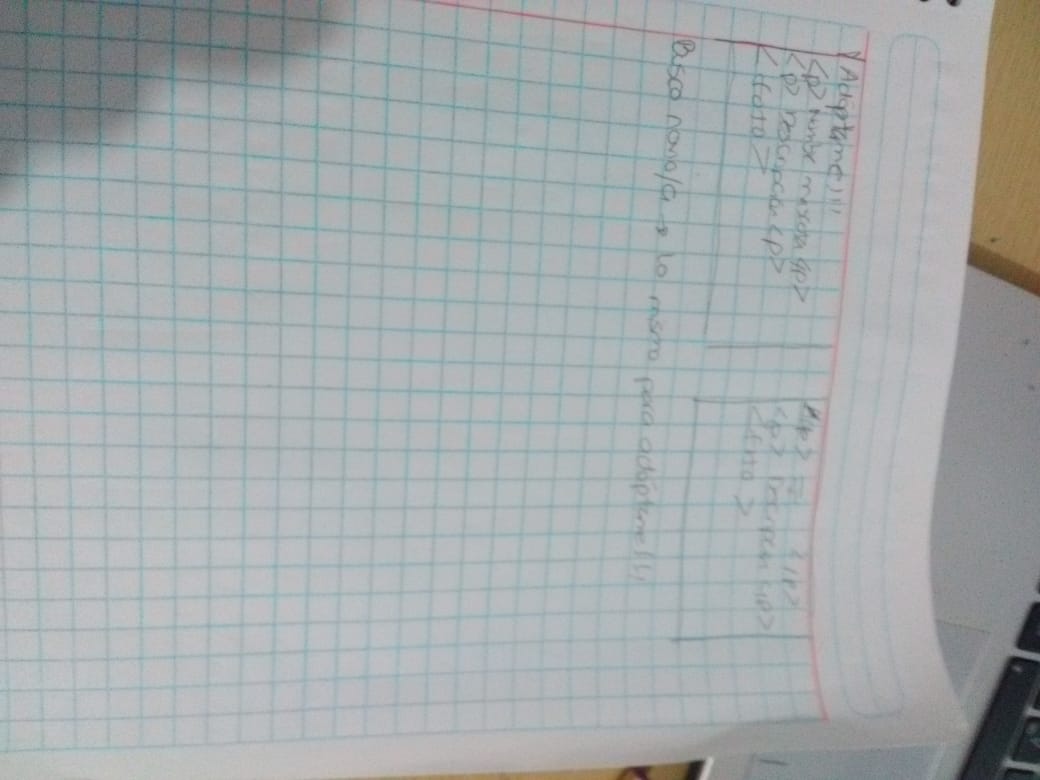 Adoptame!!!
<p> Nombre mascota <p>
<p> Descripcion <p>
< foto >
<p> = <p>
<p> Descripcion <p>
< foto >
Busco novio/a → lo mismo para adoptame!!!